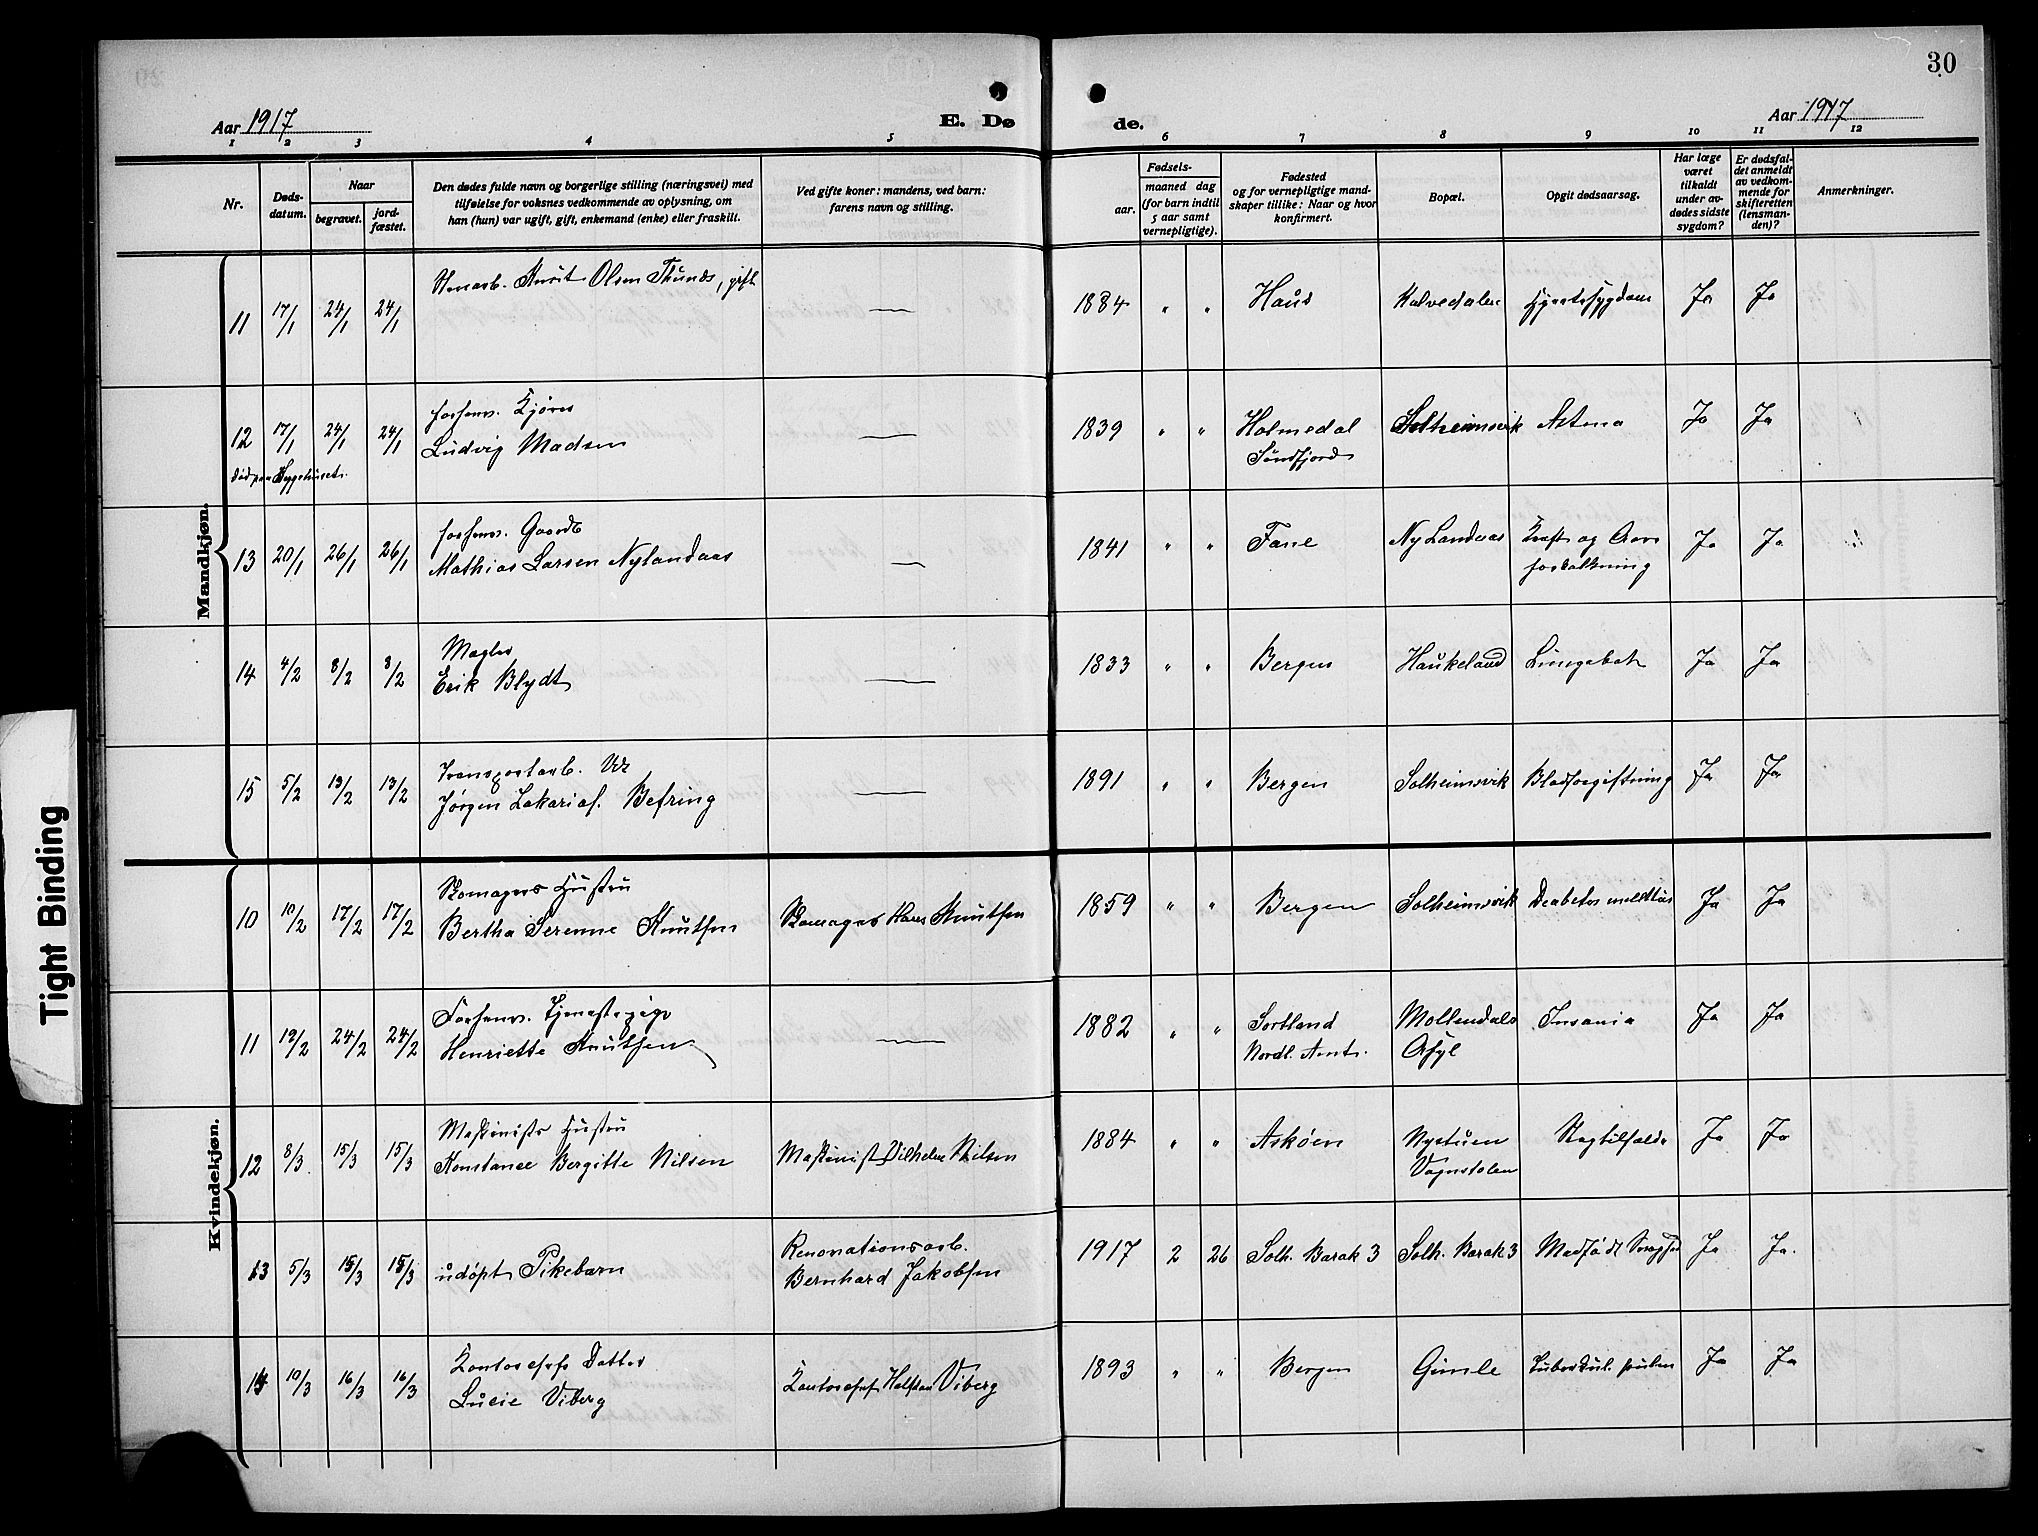 30
Aar 1917
E. Dø de.
Aar 1917
1 2 3 4 5 6 7 8 9 10 11 12
Nr.
Døds-
datum.
Naar
begravet.
jord-
fæstet.
Den dødes fulde navn og borgerlige stilling (næringsvei) med
tilføielse for voksnes vedkommende av oplysning, om
han (hun) var ugift, gift, enkemand (enke) eller fraskilt.
Ved gifte koner: mandens, ved barn:
farens navn og stilling.
Fødsels-
aar.
maaned dag
(for barn indtil
5 aar samt
vernepligtige).
Fødested
og for vernepligtige mand-
skaper tillike: Naar og hvor
konfirmert.
Bopæl.
Opgit dødsaarsag.
Har læge
været
tilkaldt
under av-
dødes sidste
sygdom?
Er dødsfal-
det anmeldt
av vedkom-
mende for
skifteretten
(lensman-
den)?
Anmerkninger.
Mandkjøn.
11 17/1 24/1 24/1 Stenarb. Knut Olsen Thunes, gift — 1884 " " Haus Kalvedalen Hjertesygdom Ja Ja
forhenv. Kjører
12 17/1 24/1 24/1 Ludvig Madsen — 1839 " " Holmedal Solheimsvik Astma Ja Ja
Søndfjord
død paa Sygehuset.
forhenv. Gaardb
13 20/1 26/1 26/1 Mathias Larsen Nylandaas — 1841 " " Fane Ny Landaas Kræft og Aare Ja Ja
forkalkning
Mægler
14 4/2 8/2 8/2 Erik Blydt — 1833 " " Bergen Haukeland Lungebet Ja Ja
Transportarb.
15 5/2 13/2 13/2 Jørgen Zakarias. Befring — 1891 " " Bergen Solheimsvik Blodforgiftning Ja Ja
Kvindekjøn.
Skomagers Hustru
10 10/2 17/2 17/2 Bertha Serenne Knutsen Skomager Hans Knutsen 1859 " " Bergen Solheimsvik Deabetes melditus Ja Ja
Forhenv. Tjenestepige
11 19/2 24/2 24/2 Henriette Knutsen — 1882 " " Sortland Møllendals Insania Ja Ja
Nordl. Amt. Asyl
Maskinists Hustru
12 8/3 15/3 15/3 Konstance Bergitte Nilsen Maskinist Vilhelm Nilsen 1884 " " Askøen Nystuen Slagtilfælde Ja Ja
Vognstolen
Renovationsarb.
13 5/3 15/3 15/3 udøpt Pikebarn Bernhard Jakobsen 1917 2 26 Solh. Barak 3 Solh. Barak 3 Medfødt Svaghed Ja Ja.
Kontorchefs Datter
14 10/3 16/3 16/3 Lucie Viberg Kontorchef Halfdan Viberg 1893 " " Bergen Gimle Tuberkul. pulm Ja Ja
Tight Binding